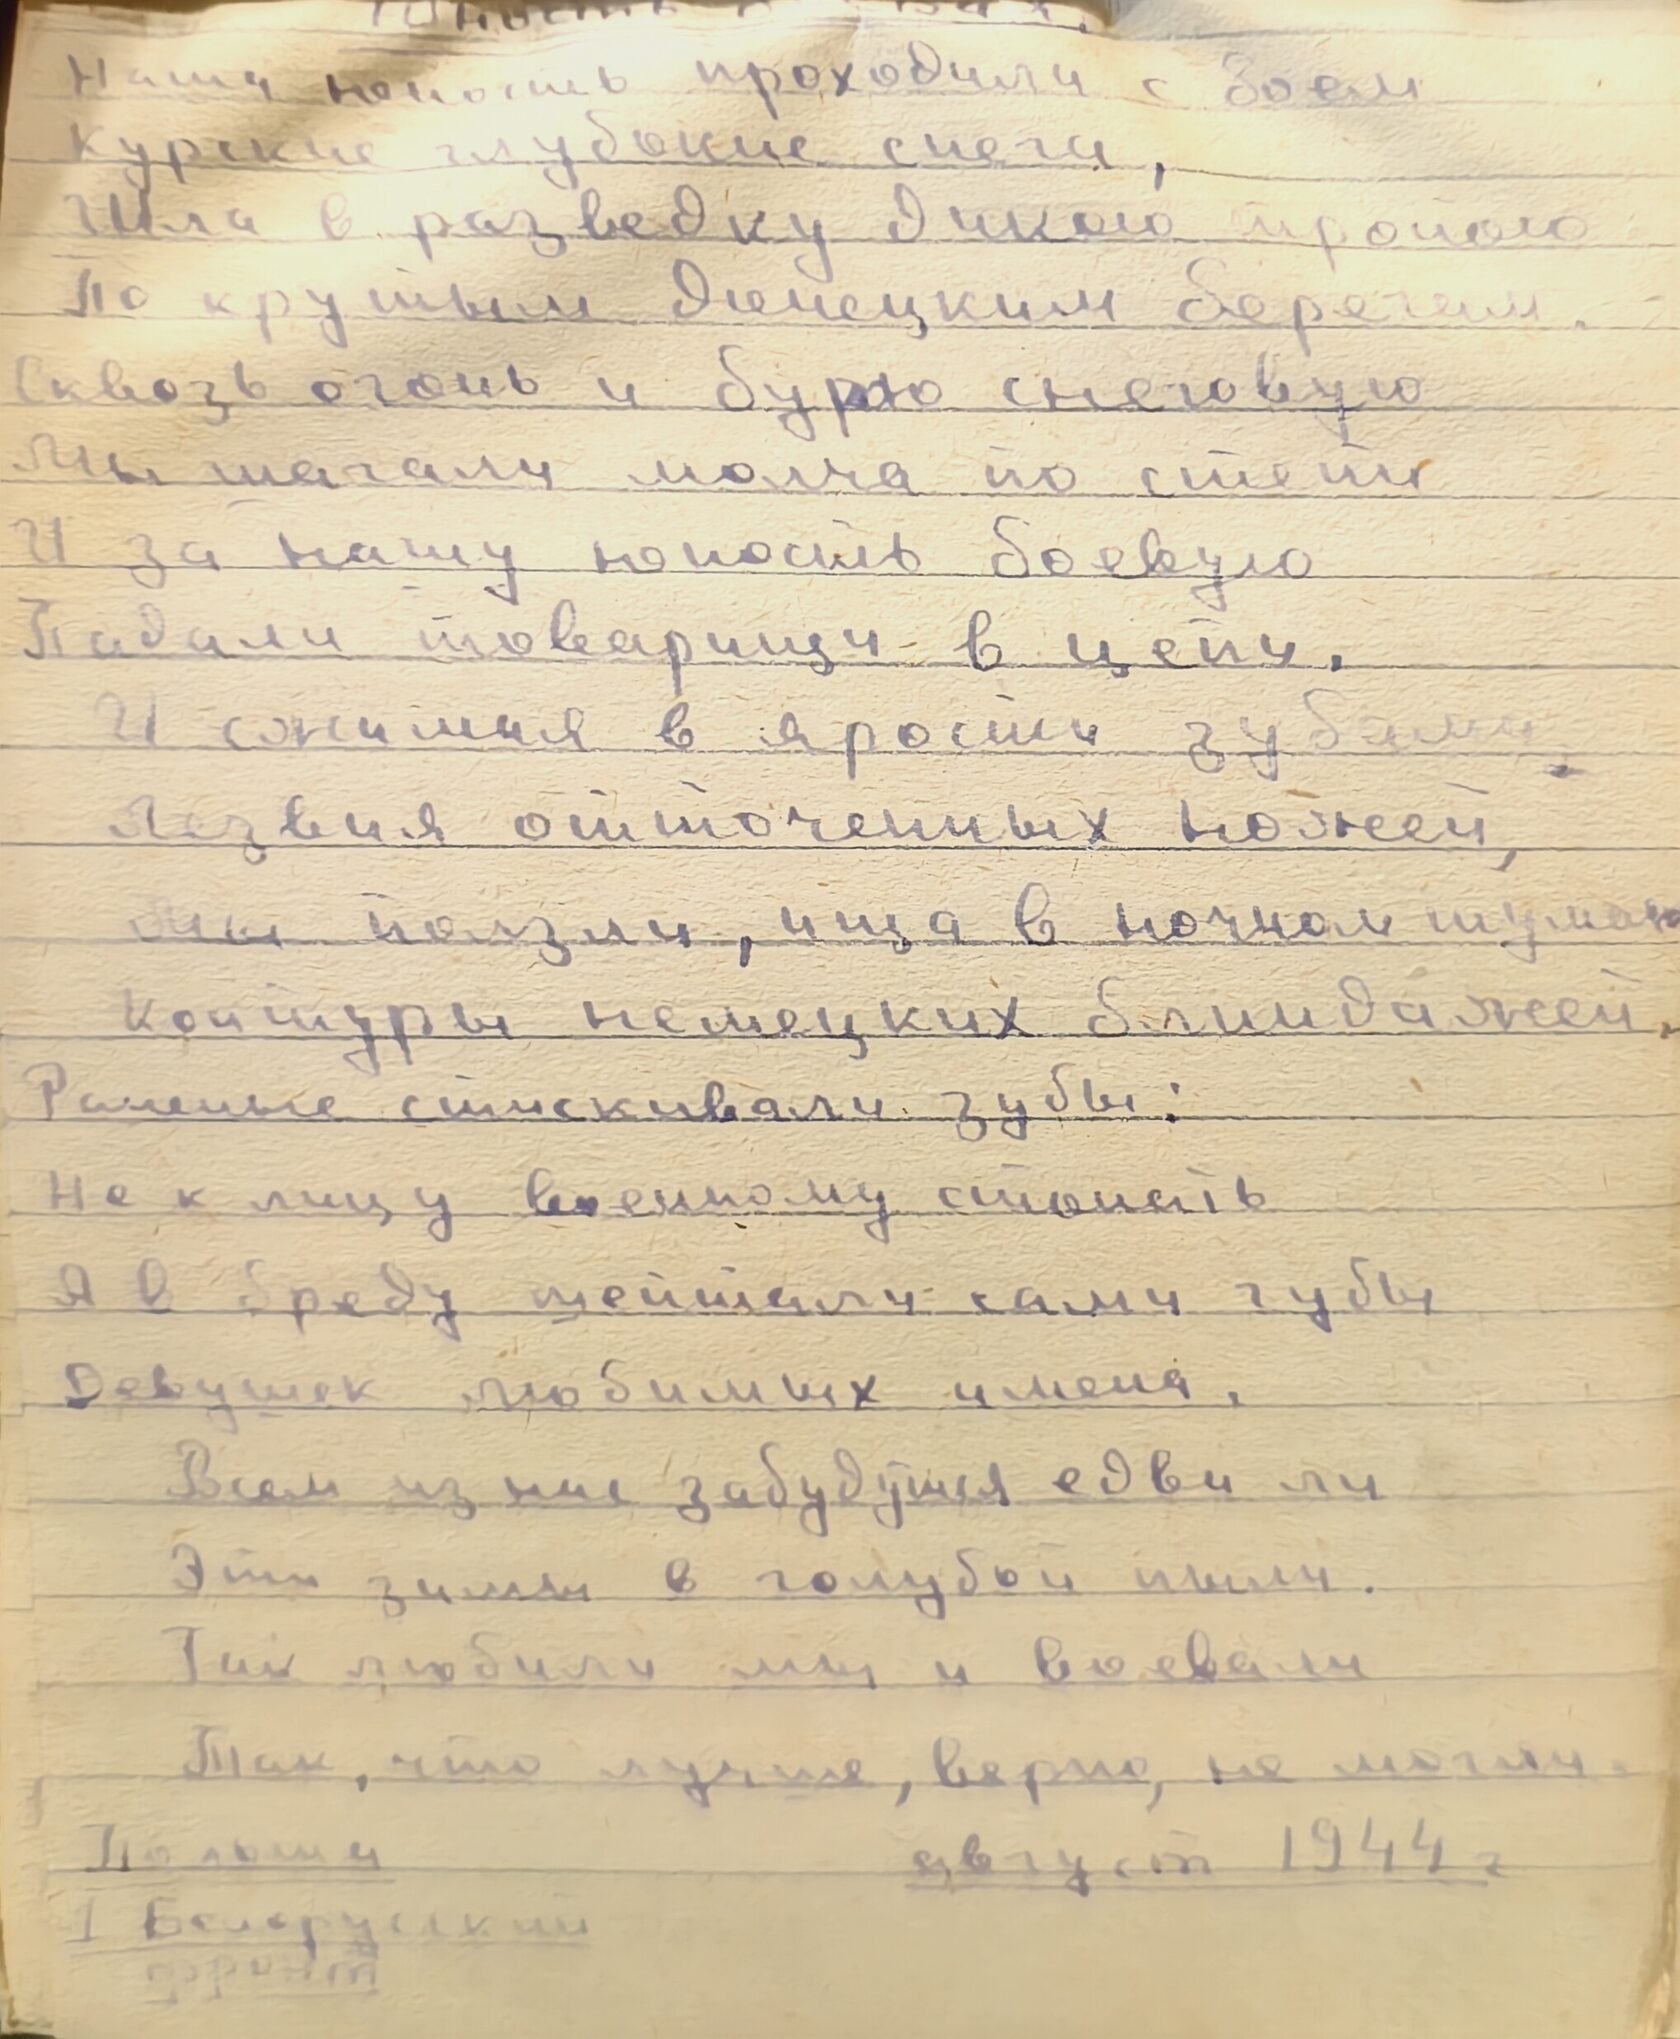 Юность в боях.
Наша юность проходила с боем
Курские глубокие снега,
Шла в разведку дикою тропою
По крутым донецким берегам.
Сквозь огонь и бурю снеговую
Мы шагали молча по степи
И за нашу юность боевую
Падали товарищи в цепи.
И сжимая в ярости зубами,
Лезвия отточенных ножей,
Мы ползли, ища в ночном тумане
Контуры немецких блиндажей.
Раненые стискивали зубы:
Не к лицу военному стонать
А в бреду шептали сами губы
Девушек любимых имена.
Всем из нас забудутся едва ли
Эти зимы в голубой пыли.
Так любили мы и воевали
Так, что лучше, верно, не могли.
Польша август 1944 г
I Белорусский
фронт